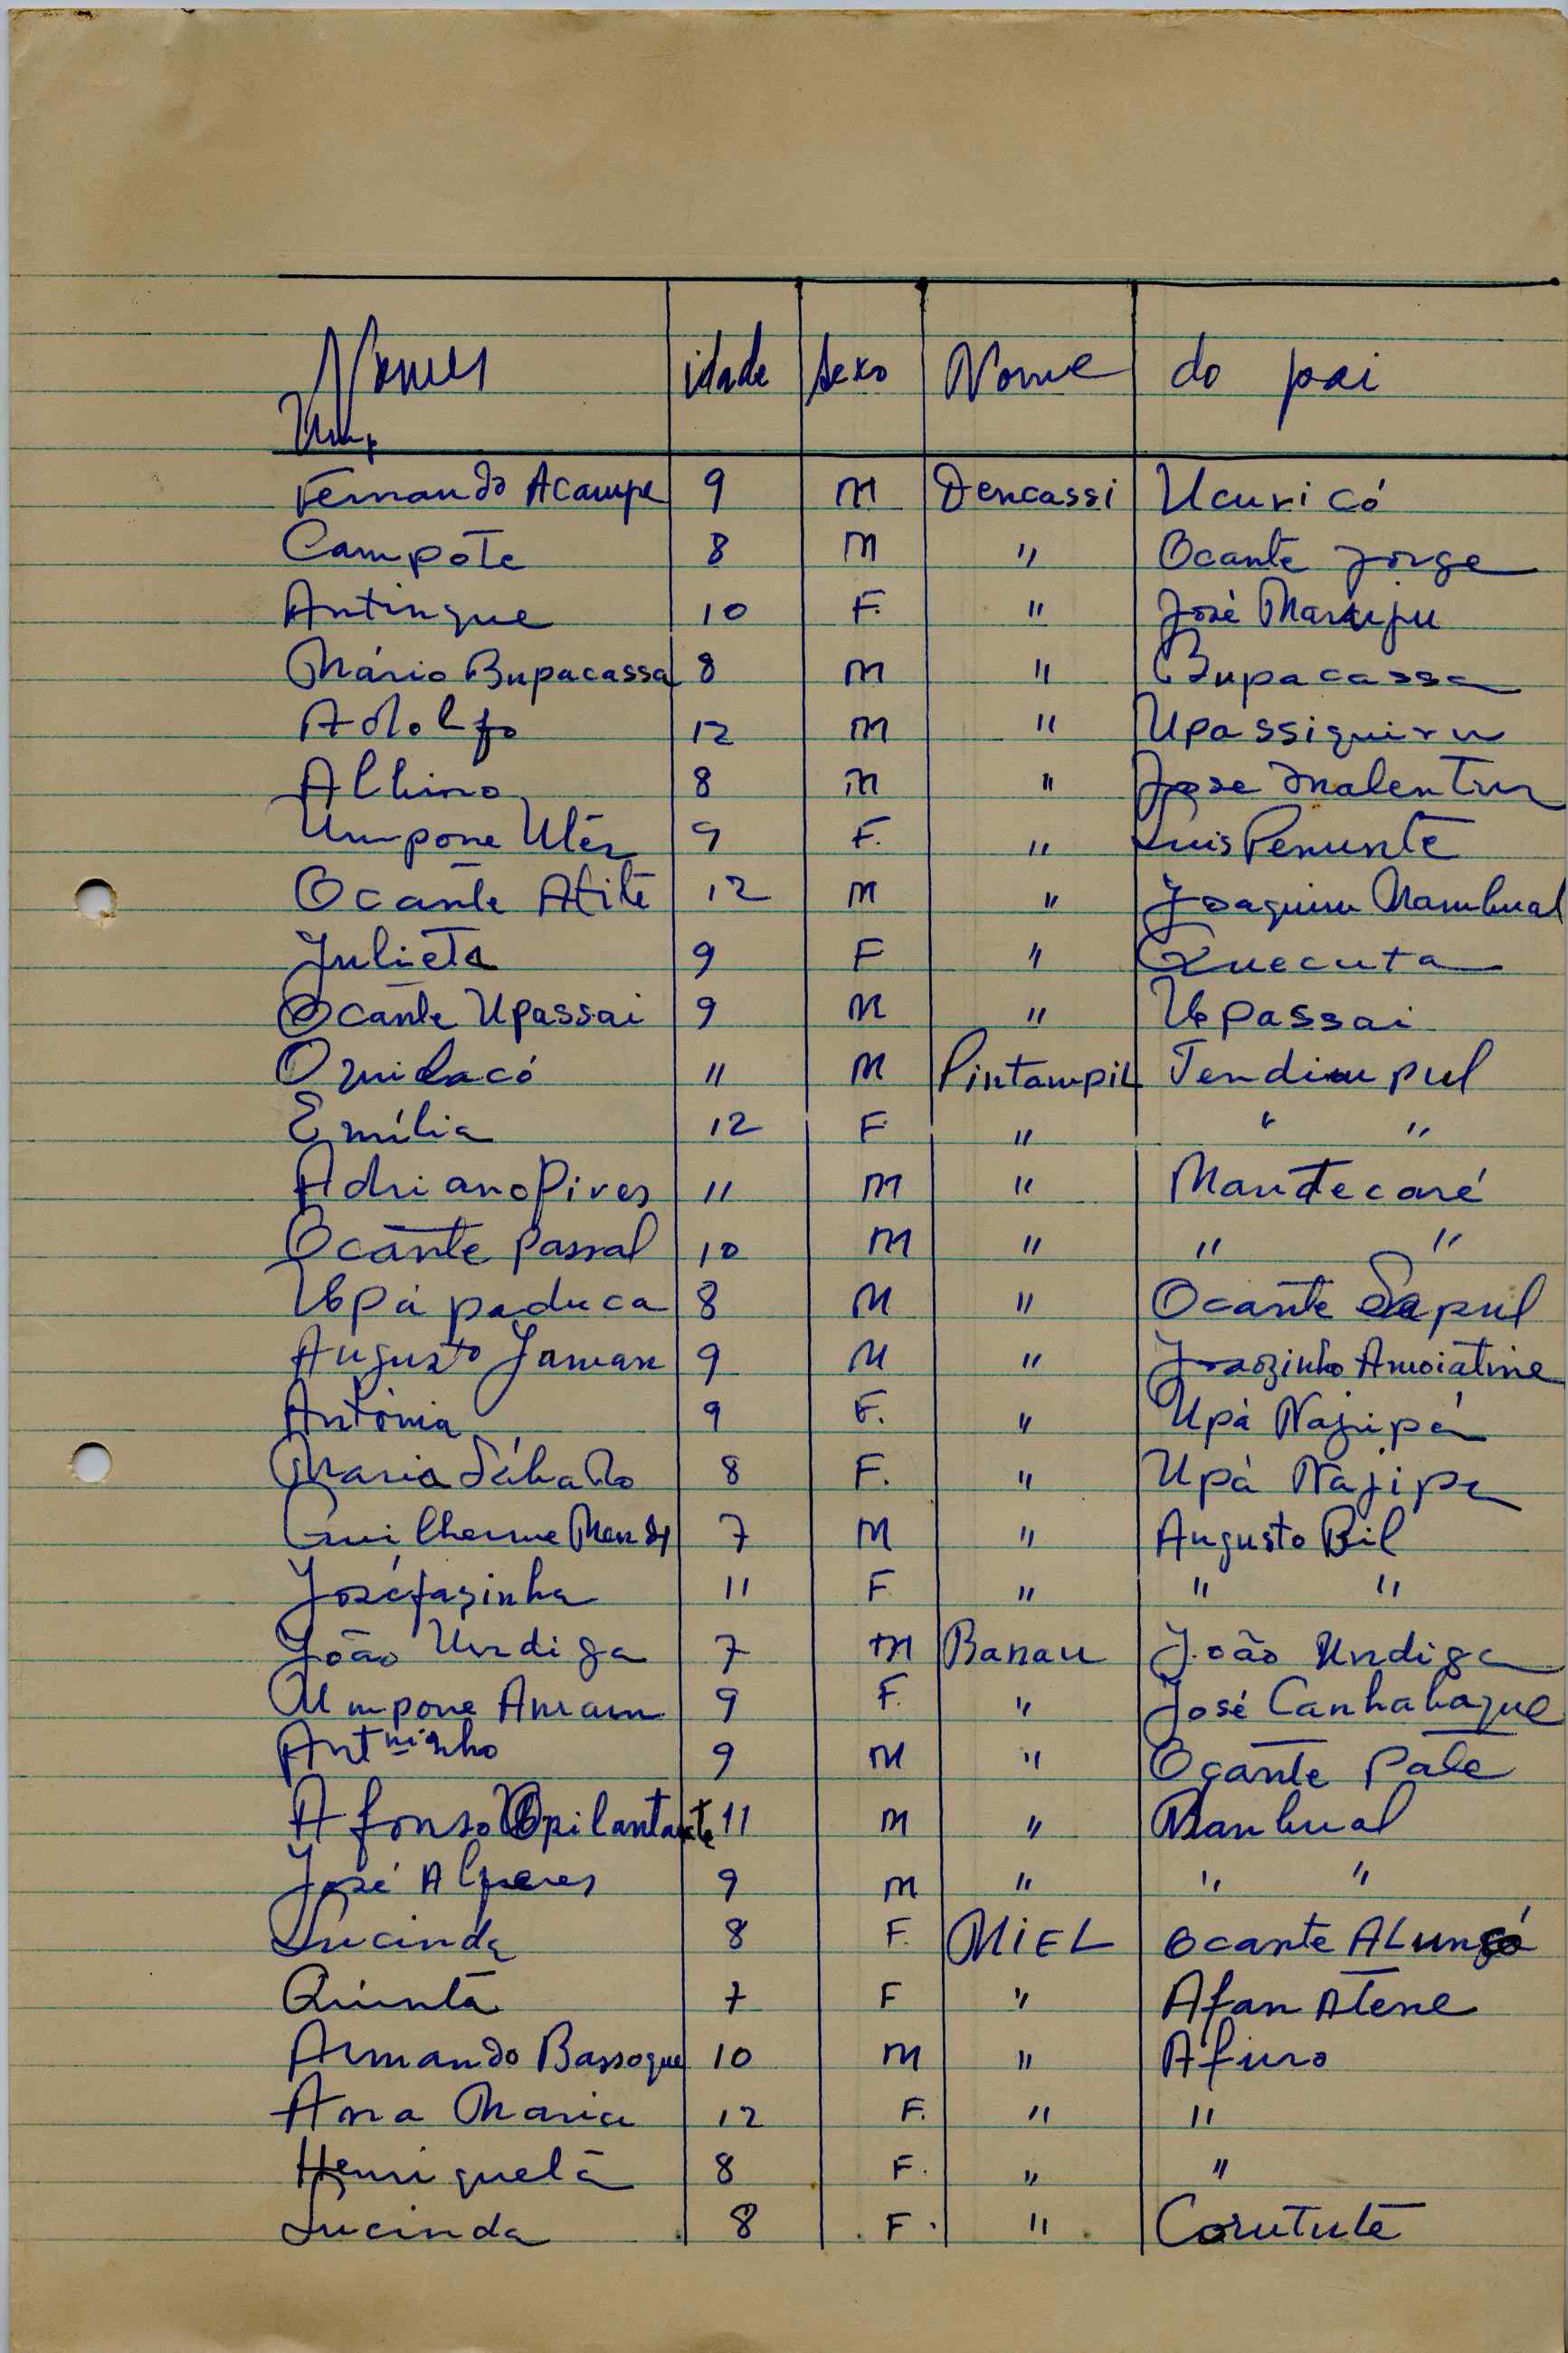 Nomes idade sexo Nome do pai
Ump
Fernando Acampe 9 M Dencassi Ucuricó
Campote 8 M " Ocante Jorge
Antingue 10 F. " José Marupu
Mário Bupacassa 8 M " Bupacassa
Adolfo 12 M " Upassiquiru
Albino 8 M " Jose
Umpone 9 F. " Luis Penunte
Ocante Atite 12 M " Joaquim Nambual
Julieta 9 F " Quecuta
Ocante Upassai 9 M " Upassai
11 M Pintampil Tendimpul
Emília 12 F " " "
Adriano Pires 11 M " Mantecaré
Ocante Passal 10 M " " "
Upá paduca 8 M " Ocante Sapul
Augusto 9 M " Joaozinho Amoiatine
Antónia 9 F. " Upá Najipá
Maria Sábado 8 F. " Upá Najipe
Guilherme Mendy 7 M " Augusto Bil
Joséfazinha 11 F " " "
João Undiga 7 M Banau João Undiga
Umpone Anram 9 F. " José Canhabaque
Antninho 9 M " Ocante Pate
Afonso 11 M " Nanbual
José Alferes 9 M " " "
Lucinda 8 F. MiEL Ocante
Quinta 7 F " Afan Atene
Armando Bassoque 10 M " Afuro
Ana Maria 12 F. " "
Henriqueta 8 F. " "
Lucinda 8 F. " Corutute